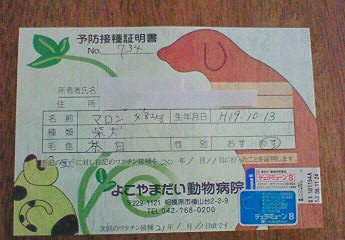 予防接種証明書
No. 734
所有者氏名
住所
名前 マロン 生年月日 H19.10.13
種類 柴犬
毛色 茶白 性別 おす めす
に対し右記のワクチン接種を20年1月11日に行ったことを証明します。
よこやまだい動物病院
〒229-1121 相模原市横山台2-2-9
TEL 042-768-0200
次回のワクチン接種 21年1月11日頃です。
デュラミューン
8
デュラミューン 8